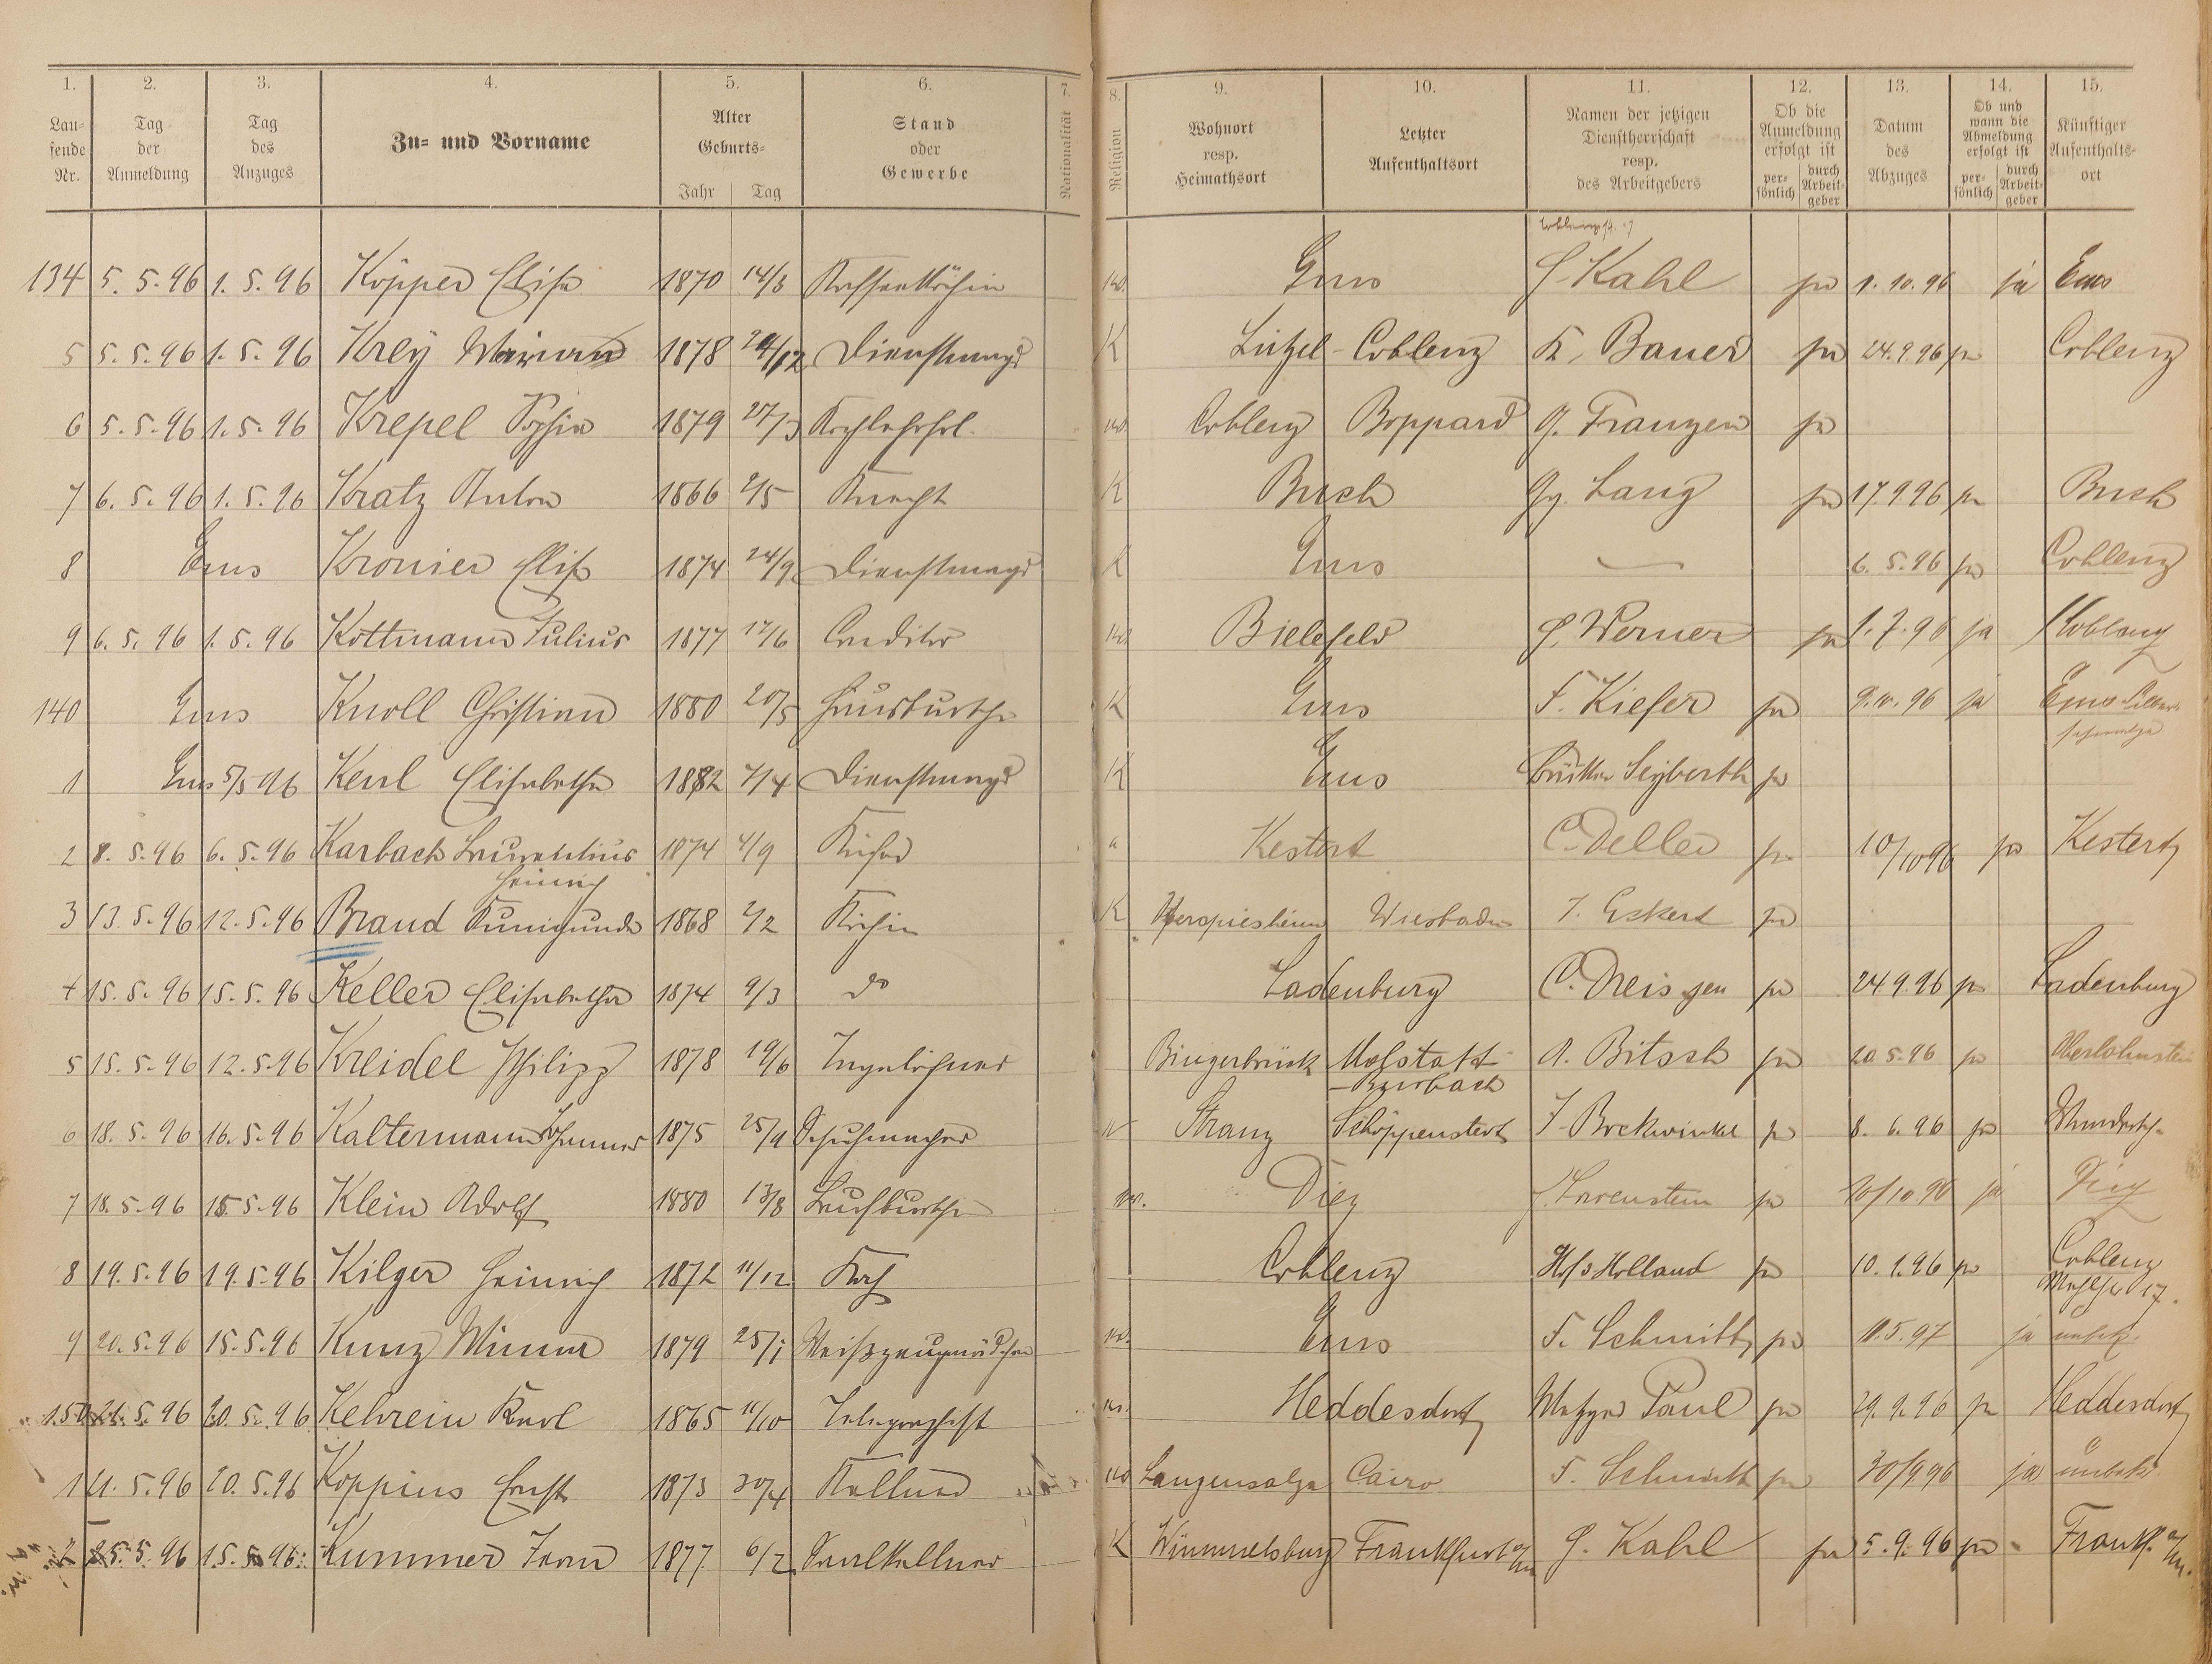 1. 2. 3. 4. 5. 6. 7. 8. 9. 10. 11. 12. 13. 14. 15.
Lau-
fende
Nr.
Tag
der
Anmeldung
Tag
des
Anzuges
Zu- und Vorname
Alter
Geburts-
Jahr Tag
Stand
oder
Gewerbe
Nationalität
Religion
Wohnort
resp.
Heimathsort
Letzter
Aufenthaltsort
Namen der jetzigen
Dienstherrschaft
resp.
des Arbeitgebers
Ob die
Anmeldung
erfolgt ist
per-
sönlich
durch
Arbeit-
geber
Datum
des
Abzuges
Ob und
wann die
Abmeldung
erfolgt ist
per-
sönlich
durch
Arbeit-
geber
Künftiger
Aufenthalts-
ort
134 5. 5. 96 1. 5. 96 Köpper Elise 1870 14/3 Kaffeeköchin Ems Kahl ja 1. 10. 96 ja Ems
5 5. 5. 96 1. 5. 96 Krey 1878 /12 Dienstmagd K Lützel-Coblenz K. Bauer ja 24. 9. 96 ja Coblenz
6 5. 5. 96 1. 5. 96 Krepel Sophie 1879 27/3 Coblenz Boppard Franzen ja
7 6. 5. 96 1. 5. 96 Kratz Anton 1866 2/5 Knecht K Buch Gg. Lang ja 17. 9. 96 ja Buch
8 Ems Kronier Elise 1874 24/9 Dienstmagd K Ems — 6. 5. 96 ja Coblenz
9 6. 5. 96 1. 5. 96 Kottmann Julius 1877 17/6 Conditor Bielefeld Werner ja 1. 7. 96 ja Koblenz
140 Ems Knoll Christian 1880 20/5 Hausbursche K Ems F. Kiefer ja 9. 10. 96 ja Ems
1 Ems 5/5 96 Kerl Elisabetha 1882 7/4 Dienstmagd K Ems Seyberth ja
2 8. 5. 96 6. 5. 96 Karbach Laurentius 1874 4/9 Küfer Kestert C. Deller ja 10/10 96 ja Kestert
Heinrich
3 13. 5. 96 12. 5. 96 Brand Kunigunde 1868 2/2 Köchin K Wiesbaden J. Eckert ja
4 15. 5. 96 15. 5. 96 Keller Elisabetha 1874 9/3 do Ladenburg C. Dreisgen ja 24. 9. 96 ja Ladenburg
5 15. 5. 96 12. 5. 96 Kreidel Philipp 1878 19/6 Tagelöhner Bingerbrück Malstatt- A. Bitsch ja 20. 5. 96 ja Oberlahnstein
-Burbach
6 18. 5. 96 16. 5. 96 Kaltermann Johannes 1875 25/9 Schuhmacher Stranz Schöppenstedt J. Bockwinkel ja 8. 6. 96 ja
7 18. 5. 96 15. 5. 96 Klein Adolf 1880 13/8 Laufbursche Diez Löwenstein ja 20/10. 96 ja Diez
8 19. 5. 96 19. 5. 96 Kilger Heinrich 1872 11/12 Koch Coblenz Hof v Holland ja 10. 9. 96 ja Coblenz
17.
9 20. 5. 96 15. 5. 96 Kunz Minna 1879 25/1 Weißzeugmädchen Ems F. Schmitt ja 11. 5. 97 ja unbek.
150 21. 5. 96 20. 5. 96 Kehrein Karl 1865 11/10 Heddesdorf Metzger Paul ja 29. 9. 96 ja Heddesdorf
1 21. 5. 96 20. 5. 96 Koppius Ernst 1873 30/4 Kellner Langensalza Cairo F. Schmitt ja 30/9 96 ja unbek.
2 25. 5. 96 15. 5. 96 Kummer Jean 1877 6/2 Saalkellner K Wimmelsburg Frankfurt a/m G. Kahl ja 5. 9. 96 ja Frankf. a/m.